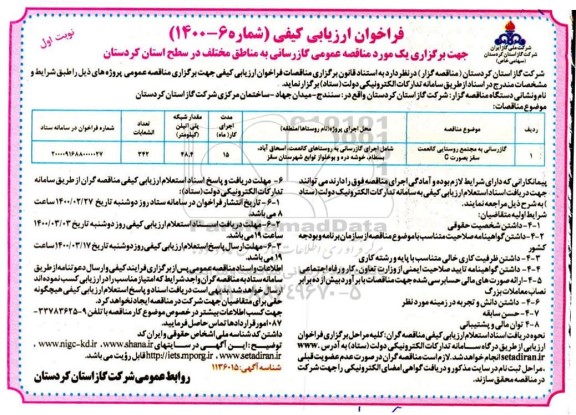 نوبت اول
فراخوان ارزیابی کیفی (شماره ۶-۱۴۰۰)
جهت برگزاری یک مورد مناقصه عمومی گازرسانی به مناطق مختلف در سطح استان کردستان
شرکت ملی گاز ایران
شرکت گاز استان کردستان
(سهامی خاص)
شرکت گاز استان کردستان (مناقصه گزار) در نظر دارد به استناد قانون برگزاری مناقصات فراخوان ارزیابی کیفی جهت برگزاری مناقصه عمومی پروژه های ذیل را طبق شرایط و
مشخصات مندرج در اسناد از طریق سامانه تدارکات الکترونیکی دولت (ستاد) برگزار نماید.
نام و نشانی دستگاه مناقصه گزار: شرکت گاز استان کردستان واقع در: سنندج-میدان جهاد-ساختمان مرکزی شرکت گاز استان کردستان
موضوع مناقصات:
ردیف موضوع مناقصه محل اجرای پروژه (نام روستاها/منطقه) مدت اجرای کار (ماه) مقدار شبکه پلی اتیلن (کیلومتر) تعداد انشعابات شماره فراخوان در سامانه ستاد
۱ گازرسانی به مجتمع روستایی کانعمت سقز بصورت C شامل اجرای گازرسانی به روستاهای کانعمت، اسحاق آباد، خوشه دره و بوغلواز توابع شهرستان سقز ۱۵ ۴۸.۴ ۳۴۲ ۲۰۰۰۰۹۱۶۸۸۰۰۰۰۲۷
پیمانکارانی که دارای شرایط لازم بوده و آمادگی اجرای مناقصه فوق را دارند می توانند
جهت دریافت اسناد استعلام ارزیابی کیفی به سامانه تدارکات الکترونیک دولت (ستاد)
به شرح ذیل مراجعه نمایند.
شرایط اولیه متقاضیان:
۱-۴- داشتن شخصیت حقوقی
۲-۴- داشتن گواهینامه صلاحیت متناسب با موضوع مناقصه از سازمان برنامه و بودجه
کشور
۳-۴- داشتن ظرفیت کاری خالی متناسب با پایه و رشته کاری
۴-۴- داشتن گواهینامه تایید صلاحیت ایمنی از وزارت تعاون، کار و رفاه اجتماعی
۵-۴- ارائه صورت های مالی حسابرسی شده جهت مناقصات با برآورد بیش از ده برابر
نصاب معاملات بزرگ
۶-۴- داشتن دانش و تجربه در زمینه مورد نظر
۷-۴- حسن سابقه
۸-۴ توان مالی و پشتیبانی
نحوه دریافت اسناد استعلام ارزیابی کیفی مناقصه گران: کلیه مراحل برگزاری فراخوان
ارزیابی از طریق درگاه سامانه تدارکات الکترونیکی دولت (ستاد) به آدرس www.
setadiran.ir انجام خواهد شد. لازم است مناقصه گران در صورت عدم عضویت قبلی
، مراحل ثبت نام در سایت مذکور و دریافت گواهی امضای الکترونیکی را جهت شرکت
در مناقصه محقق سازند.
۶- مهلت دریافت و پاسخ اسناد استعلام ارزیابی کیفی مناقصه گران از طریق سامانه
تدارکات الکترونیکی دولت (ستاد):
۱-۶- تاریخ انتشار فراخوان در سامانه ستاد روز دوشنبه تاریخ ۱۴۰۰/۰۲/۲۷ ساعت
۸ می باشد.
۲-۶- مهلت دریافت اسناد استعلام ارزیابی کیفی روز دوشنبه تاریخ ۱۴۰۰/۰۳/۰۳
ساعت ۱۹ می باشد.
۳-۶- مهلت ارسال پاسخ استعلام ارزیابی کیفی روز دوشنبه تاریخ ۱۴۰۰/۰۳/۱۷ ساعت
۱۹ می باشد.
اطلاعات و اسناد مناقصه عمومی پس از برگزاری فرایند کیفی و ارسال دعوتنامه از طریق
سامانه ستاد به مناقصه گران واجد شرایط که امتیاز مناسب را در ارزیابی کسب نموده اند
ارسال خواهد شد. بدیهی است دریافت اسناد و پاسخ استعلام ارزیابی کیفی هیچگونه
حقی برای متقاضیان جهت شرکت در مناقصه ایجاد نخواهد کرد.
جهت کسب اطلاعات بیشتر در خصوص موضوع کار مناقصه با تلفن ۹-۳۳۷۸۳۶۲۵-
۰۸۷ امور قراردادها تماس حاصل فرمایید.
داشتن کد شناسه ملی اشخاص حقوقی و ایران کد
توضیح: این آگهی در سایتهای www.shana.ir، www.nigc-kd.ir،
http://iets.mporg.ir، www.setadiran.ir قابل رویت می باشد.
شناسه آگهی: ۱۱۳۶۰۱۵
روابط عمومی شرکت گاز استان کردستان